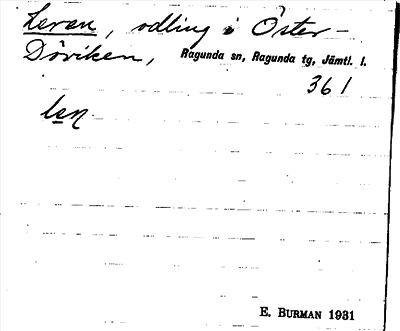 Leran, odling i Öster-
Döviken, Ragunda sn, Ragunda tg, Jämtl. l.
361
E. BURMAN 1931